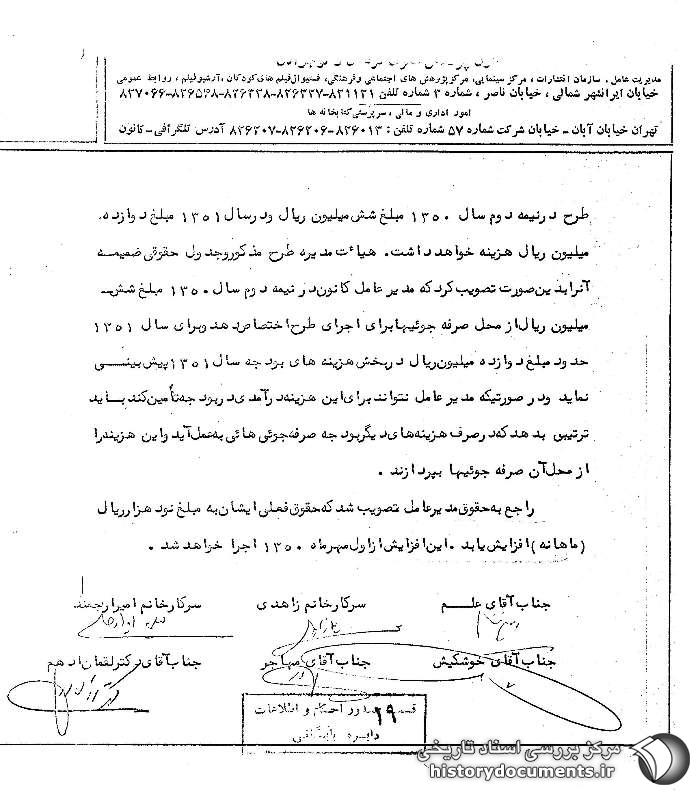 مدیریت عامل، سازمان انتشارات، مرکز سینمایی، مرکز پژوهش های اجتماعی و فرهنگی، فستیوال فیلم های کودکان، آرشیو فیلم، روابط عمومی
خیابان ایرانشهر شمالی، خیابان ناصر، شماره ۳ شماره تلفن ۸۲۱۱۲۱-۸۲۶۲۲۷-۸۲۶۲۲۸-۸۲۶۵۶۸-۸۲۷۰۶۶
امور اداری و مالی، سرپرستی کتابخانه ها
تهران خیابان آبان – خیابان شرکت شماره ۵۷ شماره تلفن : ۸۲۶۰۱۳-۸۲۶۲۰۶-۸۲۶۲۰۷ آدرس تلگرافی – کانون
طرح در نیمه دوم سال ۱۳۵۰ مبلغ شش میلیون ریال و در سال ۱۳۵۱ مبلغ دوازده
میلیون ریال هزینه خواهد داشت. هیأت مدیره طرح مذکور و جدول حقوقی ضمیمه
آنرا بدین صورت تصویب کرد که مدیر عامل کانون در نیمه دوم سال ۱۳۵۰ مبلغ شش
میلیون ریال از محل صرفه جوئیها برای اجرای طرح اختصاص دهد و برای سال ۱۳۵۱
حدود مبلغ دوازده میلیون ریال در بخش هزینه های بودجه سال ۱۳۵۱ پیش بینی
نماید و در صورتیکه مدیر عامل نتواند برای این هزینه درآمدی در بودجه تأمین کند باید
ترتیبی بدهد که در صرف هزینه های دیگر بودجه صرفه جوئی هائی به عمل آید و این هزینه را
از محل آن صرفه جوئیها بپردازند .
راجع به حقوق مدیر عامل تصویب شد که حقوق فعلی ایشان به مبلغ نود هزار ریال
(ماهانه) افزایش یابد . این افزایش از اول مهر ماه ۱۳۵۰ اجرا خواهد شد .
جناب آقای علم سرکار خانم زاهدی سرکار خانم امیر ارجمند
جناب آقای خوشکیش جناب آقای مهاجر جناب آقای دکتر لقمان ادهم
قسمت صدور احکام و اطلاعات
۱۹
دایره بایگانی
مرکز بررسی اسناد تاریخی
historydocuments.ir